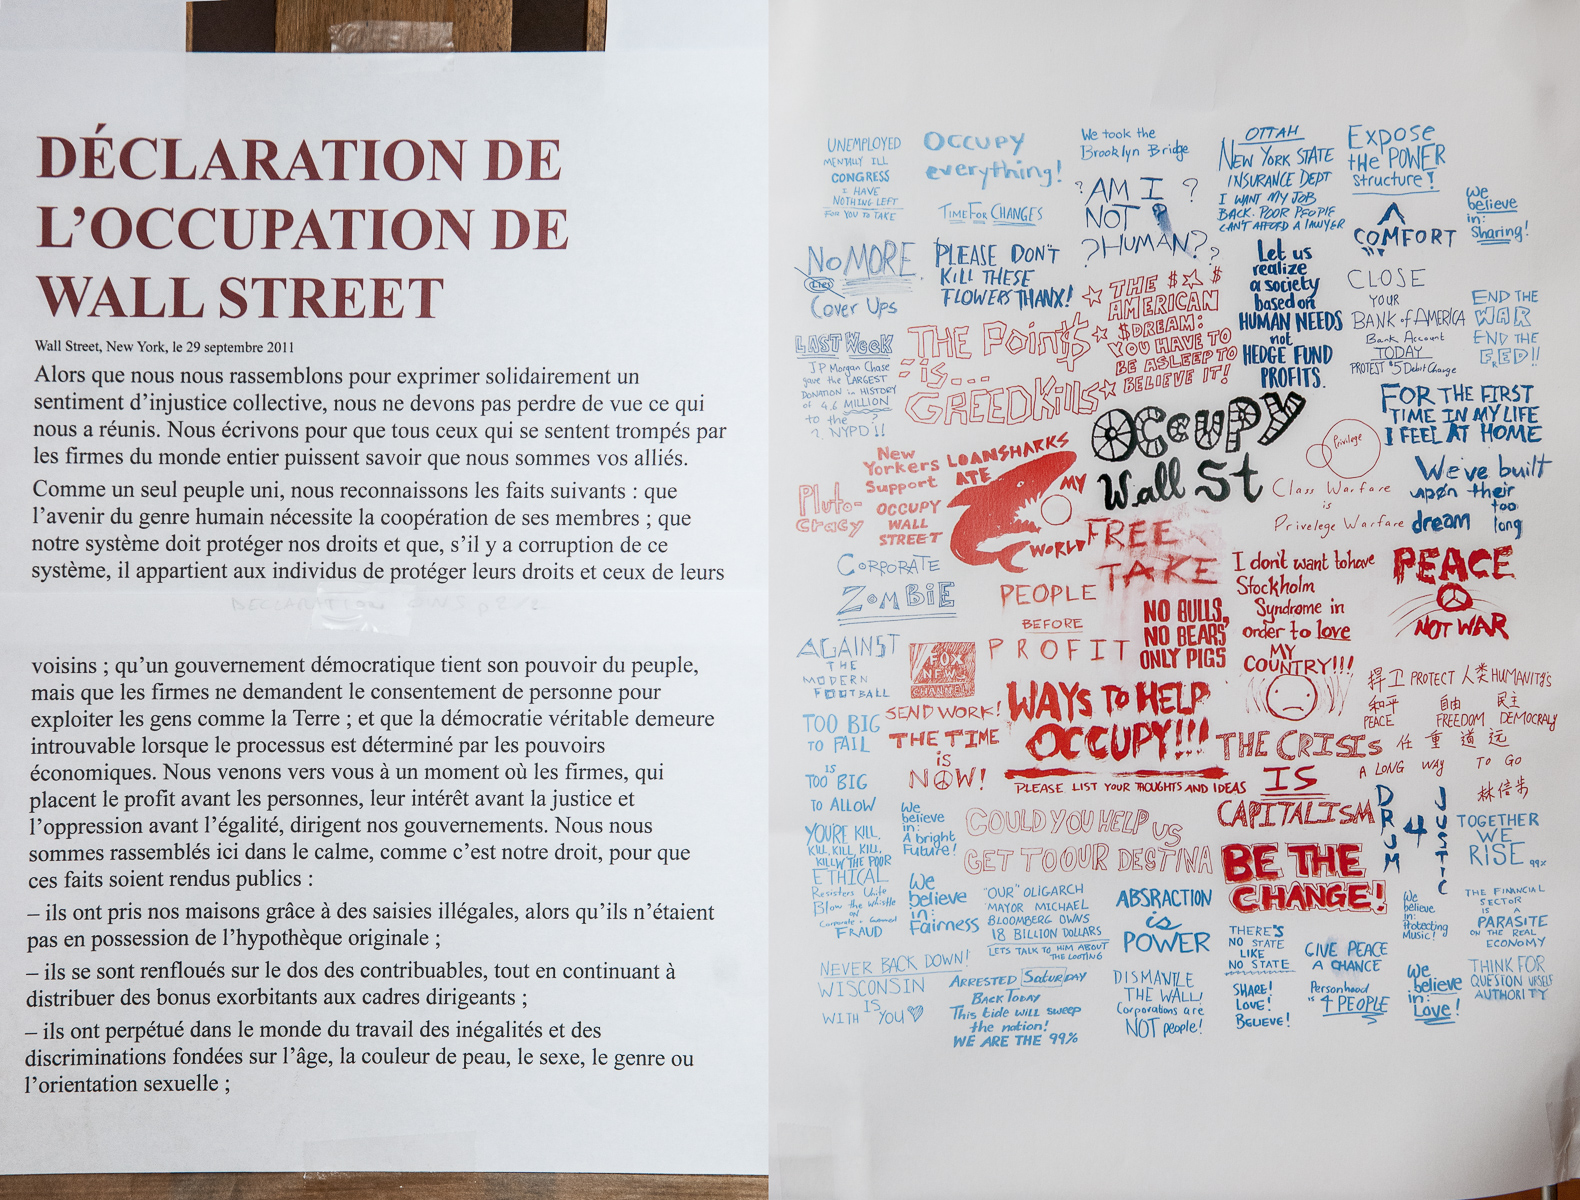 DÉCLARATION DE
L’OCCUPATION DE
WALL STREET
Wall Street, New York, le 29 septembre 2011
Alors que nous nous rassemblons pour exprimer solidairement un
sentiment d’injustice collective, nous ne devons pas perdre de vue ce qui
nous a réunis. Nous écrivons pour que tous ceux qui se sentent trompés par
les firmes du monde entier puissent savoir que nous sommes vos alliés.
Comme un seul peuple uni, nous reconnaissons les faits suivants : que
l’avenir du genre humain nécessite la coopération de ses membres ; que
notre système doit protéger nos droits et que, s’il y a corruption de ce
système, il appartient aux individus de protéger leurs droits et ceux de leurs
voisins ; qu’un gouvernement démocratique tient son pouvoir du peuple,
mais que les firmes ne demandent le consentement de personne pour
exploiter les gens comme la Terre ; et que la démocratie véritable demeure
introuvable lorsque le processus est déterminé par les pouvoirs
économiques. Nous venons vers vous à un moment où les firmes, qui
placent le profit avant les personnes, leur intérêt avant la justice et
l’oppression avant l’égalité, dirigent nos gouvernements. Nous nous
sommes rassemblés ici dans le calme, comme c’est notre droit, pour que
ces faits soient rendus publics :
– ils ont pris nos maisons grâce à des saisies illégales, alors qu’ils n’étaient
pas en possession de l’hypothèque originale ;
– ils se sont renfloués sur le dos des contribuables, tout en continuant à
distribuer des bonus exorbitants aux cadres dirigeants ;
– ils ont perpétué dans le monde du travail des inégalités et des
discriminations fondées sur l’âge, la couleur de peau, le sexe, le genre ou
l’orientation sexuelle ;
UNEMPLOYED
MENTALLY ILL
CONGRESS
I HAVE
NOTHING LEFT
FOR YOU TO TAKE
OCCUPY
everything!
TIME FOR CHANGES
We took the
Brooklyn Bridge
?AM I ?
NOT
?HUMAN??
OTTAH
NEW YORK STATE
INSURANCE DEPT
I WANT MY JOB
BACK. POOR PEOPLE
CAN'T AFFORD A LAWYER
Expose
the POWER
structure!
COMFORT
We
believe
in:
Sharing!
No MORE
Lies
Cover Ups
PLEASE DON'T
KILL THESE
FLOWERS THANX!
THE $ $
AMERICAN
$DREAM:
YOU HAVE TO
BE ASLEEP TO
BELIEVE IT!
Let us
realize
a society
based on
HUMAN NEEDS
not
HEDGE FUND
PROFITS.
CLOSE
YOUR
BANK of AMERICA
Bank Account
TODAY
PROTEST $5 Debit Charge
END THE
WAR
END THE
FED!!
LAST WEEK
JP Morgan Chase
gave the LARGEST
DONATION in HISTORY
of 4.6 MILLION
to the ?
? NYPD!!
THE Point$
is...
GREED Kills
OCCUPY
Wall St
FOR THE FIRST
TIME IN MY LIFE
I FEEL AT HOME
Privilege
Class Warfare
is
Privelege Warfare
We've built
upon their
dream
too
long
Pluto-
cracy
New
Yorkers
Support
OCCUPY
WALL
STREET
LOANSHARKS
ATE
MY
WORLD
FREE
TAKE
CORPORATE
ZOMBIE
PEOPLE
BEFORE
PROFIT
NO BULLS,
NO BEARS
ONLY PIGS
I don't want to have
Stockholm
Syndrome in
order to love
MY
COUNTRY!!!
PEACE
NOT WAR
AGAINST
THE
MODERN
FOOTBALL
FOX
NEWS
CHANNEL
SEND WORK!
THE TIME
is
NOW!
WAYS TO HELP
OCCUPY!!!
PLEASE LIST YOUR THOUGHTS AND IDEAS
捍卫 PROTECT 人类 HUMANITY'S
和平 自由 民主
PEACE FREEDOM DEMOCRACY
任重道远
A LONG WAY TO GO
林倍步
TOO BIG
TO FAIL
IS
TOO BIG
TO ALLOW
THE CRISIS
IS
CAPITALISM
YOU'RE KILL,
KILL, KILL, KILL,
KILLN' THE POOR
ETHICAL
Resisters Unite
Blow the whistle
on
FRAUD
We
believe
in:
A bright
Future!
COULD YOU HELP US
GET TO OUR DESTINA
BE THE
CHANGE!
DRUM
4
JUSTIC
TOGETHER
WE
RISE 99%
We
believe
in:
Fairness
"OUR" OLIGARCH
MAYOR MICHAEL
BLOOMBERG OWNS
18 BILLION DOLLARS
LETS TALK TO HIM ABOUT
THE LOOTING
ABSRACTION
is
POWER
We
believe
in:
Protecting
Music!
THE FINANCIAL
SECTOR
IS A
PARASITE
ON THE REAL
ECONOMY
THERE'S
NO STATE
LIKE
NO STATE
GIVE PEACE
A CHANCE
NEVER BACK DOWN!
WISCONSIN
IS
WITH YOU
ARRESTED Saturday
BACK TODAY
This tide will sweep
the nation!
WE ARE THE 99%
DISMANTLE
THE WALL!
Corporations are
NOT people!
SHARE!
LOVE!
BELIEVE!
Personhood
is 4 PEOPLE
We
believe
in:
Love!
THINK FOR
AUTHORITY